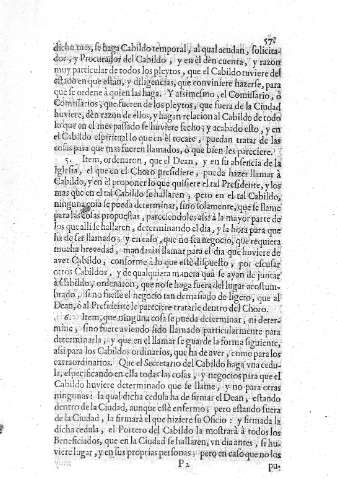 57
dicho mes, se haga Cabildo temporal, al qual acudan, solicita-
dor, y Procurador del Cabildo, y en èl dèn cuenta, y razon
muy particular de todos los pleytos, que el Cabildo tuviere del
estado en que estàn, y diligencias, que conviniere hazerse, para
que se ordene à quien las haga. Y assimesmo, el Comissario, ò
Comissarios, que fueren de los pleytos, que fuera de la Ciudad
huviere, dèn razon de ellos, y hagan relacion al Cabildo de todo
lo que en el mes passado se huviere fecho; y acabado esto, y en
el Cabildo espiritual lo que en èl tocare, puedan tratar de las
cosas para que fueren llamados, ò que bien les pareciere.
5. Item, ordenaron, que el Dean, y en su absencia de la
Iglesia, el que en el Choro presidiere, pueda hazer llamar à
Cabildo, y en èl proponer lo que quisiere el tal Presidente, y los
mas que en el tal Cabildo se hallaren, pero en el tal Cabildo,
ninguna cosa se pueda determinar, sino solamente, que se llame
para las cosas propuestas, pareciendoles assi à la mayor parte de
los que alli se hallaren, determinando el dia, y la hora para que
ha de ser llamado; y en caso, que no sea negocio, que requiera
mucha brevedad, mandaràn llamar para el dia que huviere de
aver Cabildo, conforme à lo que està dispuesto, por escusar
otros Cabildos, y de qualquiera manera que se ayan de juntar
à Cabildo, ordenaron, que no se haga fuera del lugar acostum-
brado, sino fuesse el negocio tan demasiado de ligero, que al
Dean, ò al Presidente le pareciere tratarle dentro del Choro.
6. Item, que ninguna cosa se pueda determinar, ni deter-
mine, sino fuere aviendo sido llamado particularmente para
determinarla, y que en el llamar se guarde la forma siguiente,
assi para los Cabildos ordinarios, que ha de aver, como para los
extraordinarios. Que el Secretario del Cabildo haga vna cedu-
la, especificando en ella todas las cosas, y negocios para que el
Cabildo huviere determinado que se llame, y no para otras
ningunas: la qual dicha cedula ha de firmar el Dean, estando
dentro de la Ciudad, aunque estè enfermo; pero estando fuera
de la Ciudad, la firmarà el que hiziere su Oficio: y firmada la
dicha cedula, el Portero del Cabildo la mostrarà à todos los
Beneficiados, que en la Ciudad se hallaren, vn dia antes, si hu-
viere lugar, y en sus proprias personas; pero en caso que no los
P 2 pu-